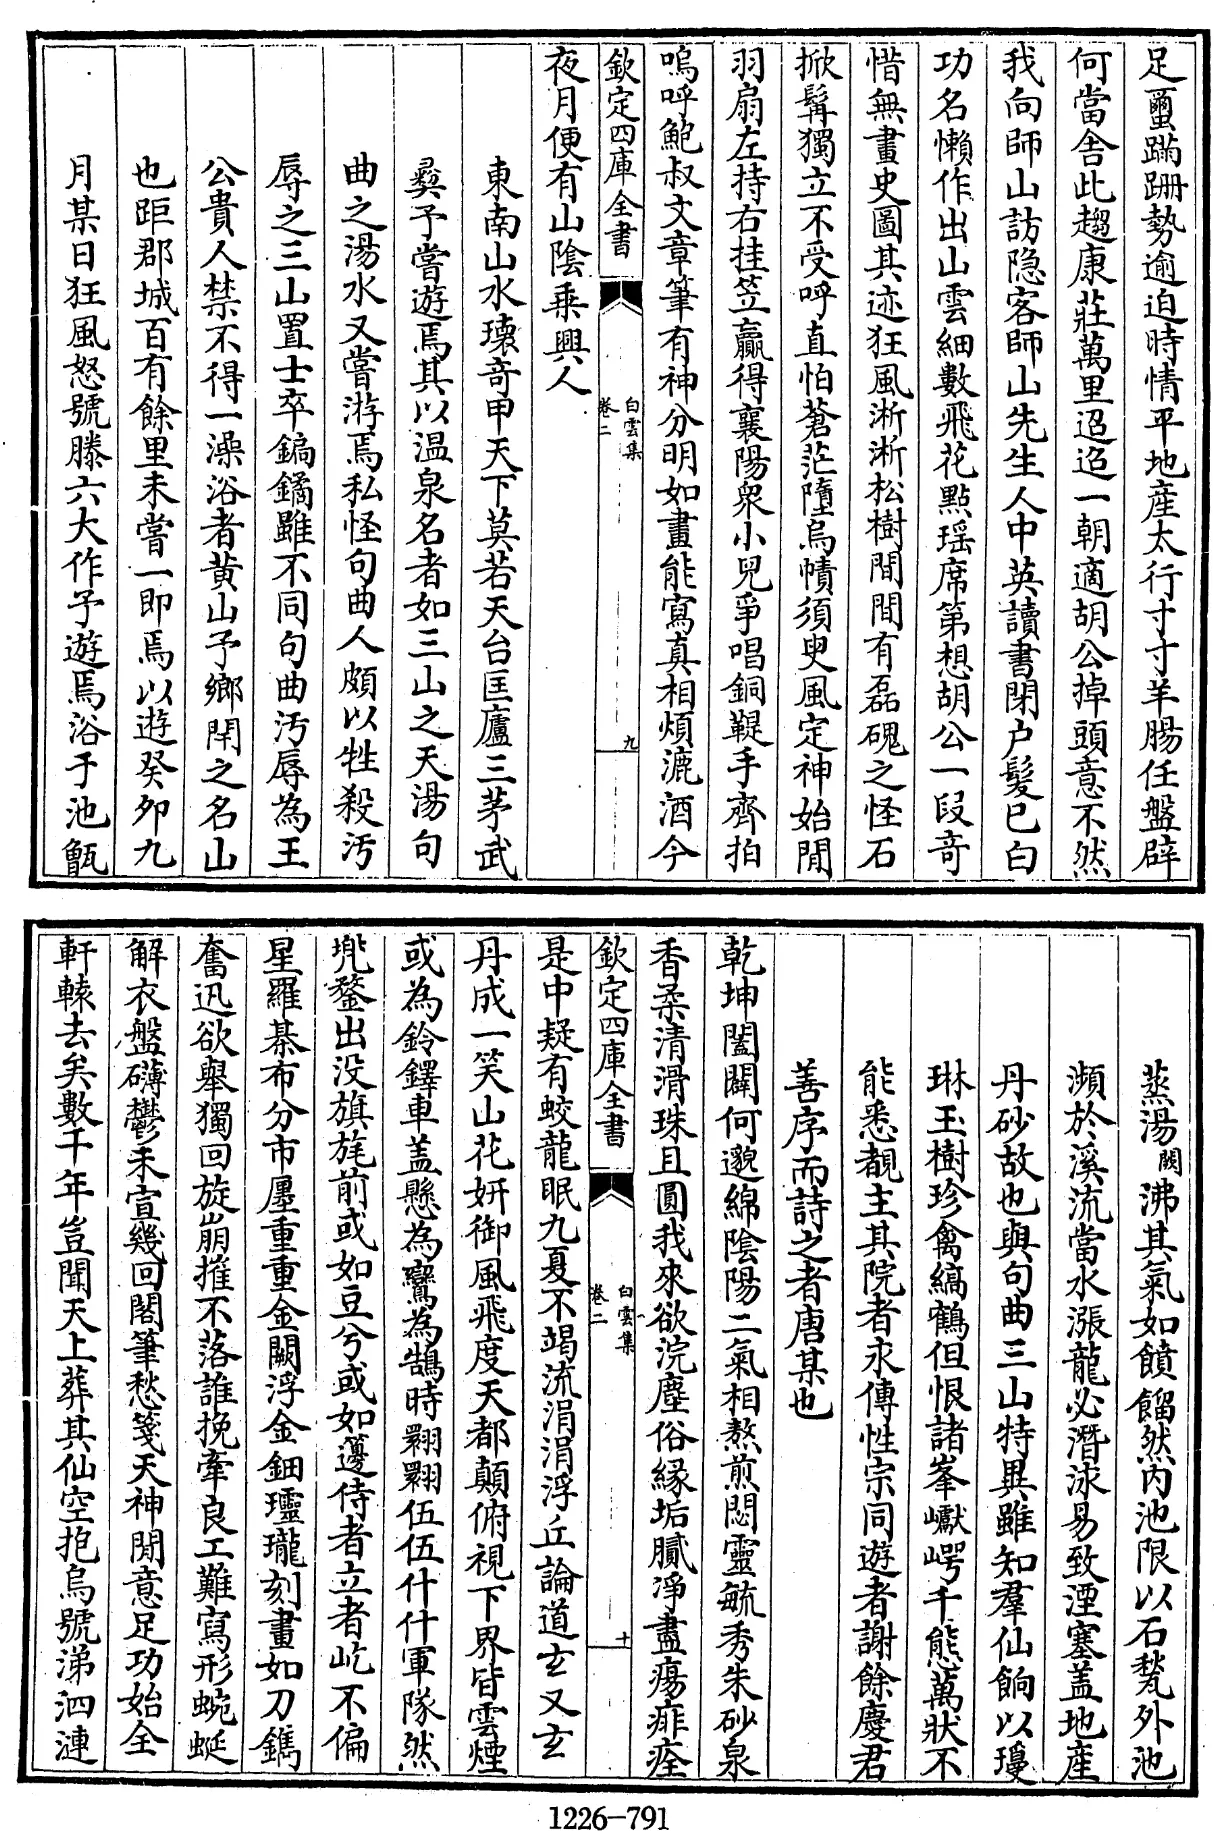 足䘒蹣跚勢逾迫時情平地産太行寸寸羊腸任盤辟
何當舍此趨康莊萬里迢迢一朝適胡公掉頭意不然
我向師山訪隐客師山先生人中英讀書閉户髮已白
功名懶作出山雲細數飛花㸃瑶席第想胡公一段奇
惜無畫史圖其迹狂風淅淅松樹間間有磊磈之怪石
掀髯獨立不受呼直怕蒼茫墮烏幘須臾風定神始閒
羽扇左持右挂笠贏得襄陽衆小兒爭唱銅鞮手齊拍
嗚呼鮑叔文章筆有神分明如畫能寫真相煩漉酒今
欽定四庫全書
白雲集
卷二
九
夜月便有山陰乗興人
東南山水瓌奇甲天下莫若天台匡廬三茅武
彛予嘗遊焉其以温泉名者如三山之天湯句
曲之湯水又嘗游焉私怪句曲人頗以牲殺汚
辱之三山置士卒鍧鐍雖不同句曲汚辱為王
公貴人禁不得一澡浴者黄山予鄉閈之名山
也距郡城百有餘里未嘗一即焉以遊癸夘九
月某日狂風怒號滕六大作予遊焉浴于池甑
蒸湯闕沸其氣如饙餾然内池限以石甃外池
瀕於溪流當水漲龍必潛泳易致湮塞盖地産
丹砂故也與句曲三山特異雖知羣仙餉以瓊
琳玉樹珍禽縞鶴但恨諸峯巘崿千態萬狀不
能悉覩主其院者永傳性宗同遊者謝餘慶君
善序而詩之者唐某也
乾坤闔闢何邈綿陰陽二氣相熬煎閟靈毓秀朱砂泉
香柔清滑珠且圓我來欲浣塵俗縁垢膩凈盡瘍痱痊
欽定四庫全書
白雲集
卷二
十
是中疑有蛟龍眠九夏不竭流涓涓浮丘論道𤣥又𤣥
丹成一笑山花妍御風飛度天都顛俯視下界皆雲煙
或為鈴鐸車盖懸為鸞為鵠時翾翾伍伍什什軍隊然
兠鍪出没旗旄前或如豆兮或如籩侍者立者屹不偏
星羅棊布分市㕓重重金闕浮金鈿瓗瓏刻畫如刀鐫
奮迅欲舉獨回旋崩摧不落誰挽牽良工難寫形蜿蜒
解衣盤礴鬱未宣幾回閣筆愁箋天神閒意足功始全
軒轅去矣數千年豈聞天上葬其仙空抱烏號涕泗漣
1226-791